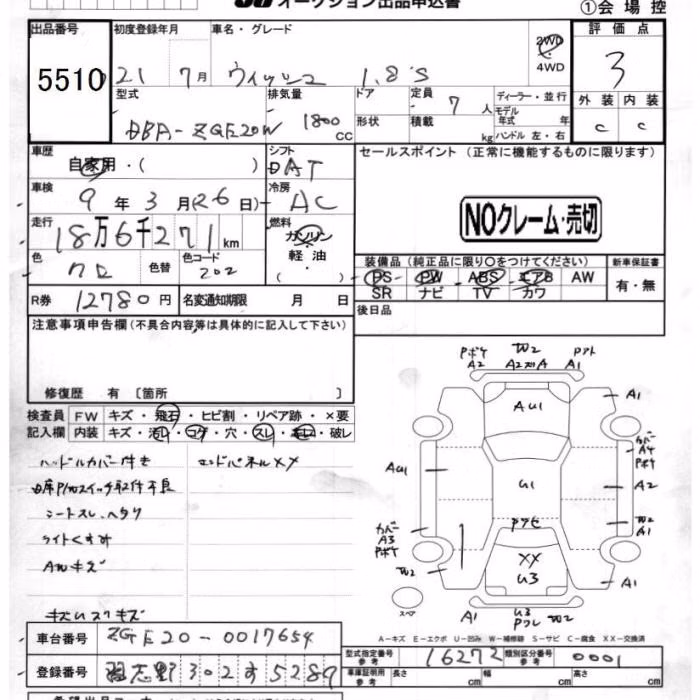 オークション出品申込書
①会場控
出品番号 初度登録年月 車名・グレード 評価点
5510 21 7月 ウィッシュ 1.8 S 2WD 4WD 3
型式 排気量 ドア 定員 ディーラー・並行 外装 内装
DBA-ZGE20W 1800 CC 形状 積載 7人 モデル年式 年 C C
kg ハンドル 左・右
車歴 シフト セールスポイント (正常に機能するものに限ります)
自家用・( ) DAT
車検 冷房
9年3月(26日) AC
NOクレーム・売切
走行 燃料
18万6千271km ガソリン
軽油
色 色替 色コード ( )
クロ 202
装備品 (純正品に限り○をつけてください) 新車保証書
PS PW ABS エアB AW 有・無
SR ナビ TV カワ
R券 12780円 名変通知期限 月 日
後日品
注意事項申告欄(不具合内容等は具体的に記入して下さい)
修復歴 有 〔箇所 〕
検査員 FW キズ・飛石・ヒビ割・リペア跡・×要
記入欄 内装 キズ・汚れ・コゲ・穴・スレ・キレ・破レ
ハンドルカバー付き エンドパネルXX
シートスレ、ヘタリ
ライトくすみ
AWキズ
Pボケ W2
A2 A1
AU1 A1
カバー
A4
Pボケ
AU1 U1 A2
W2
A1
カバー
A3
Pボケ
XX
W2 U3 A1
スペア A1 U3
W2
A-キズ E-エクボ U-凹み W-補修跡 S-サビ C-腐食 XX-交換済
車台番号 ZGE20-0017654
型式指定番号 参考 16272 類別区分番号 参考 0001
登録番号 習志野 302 す 5289
車庫証明用 参考 長さ 幅 高さ